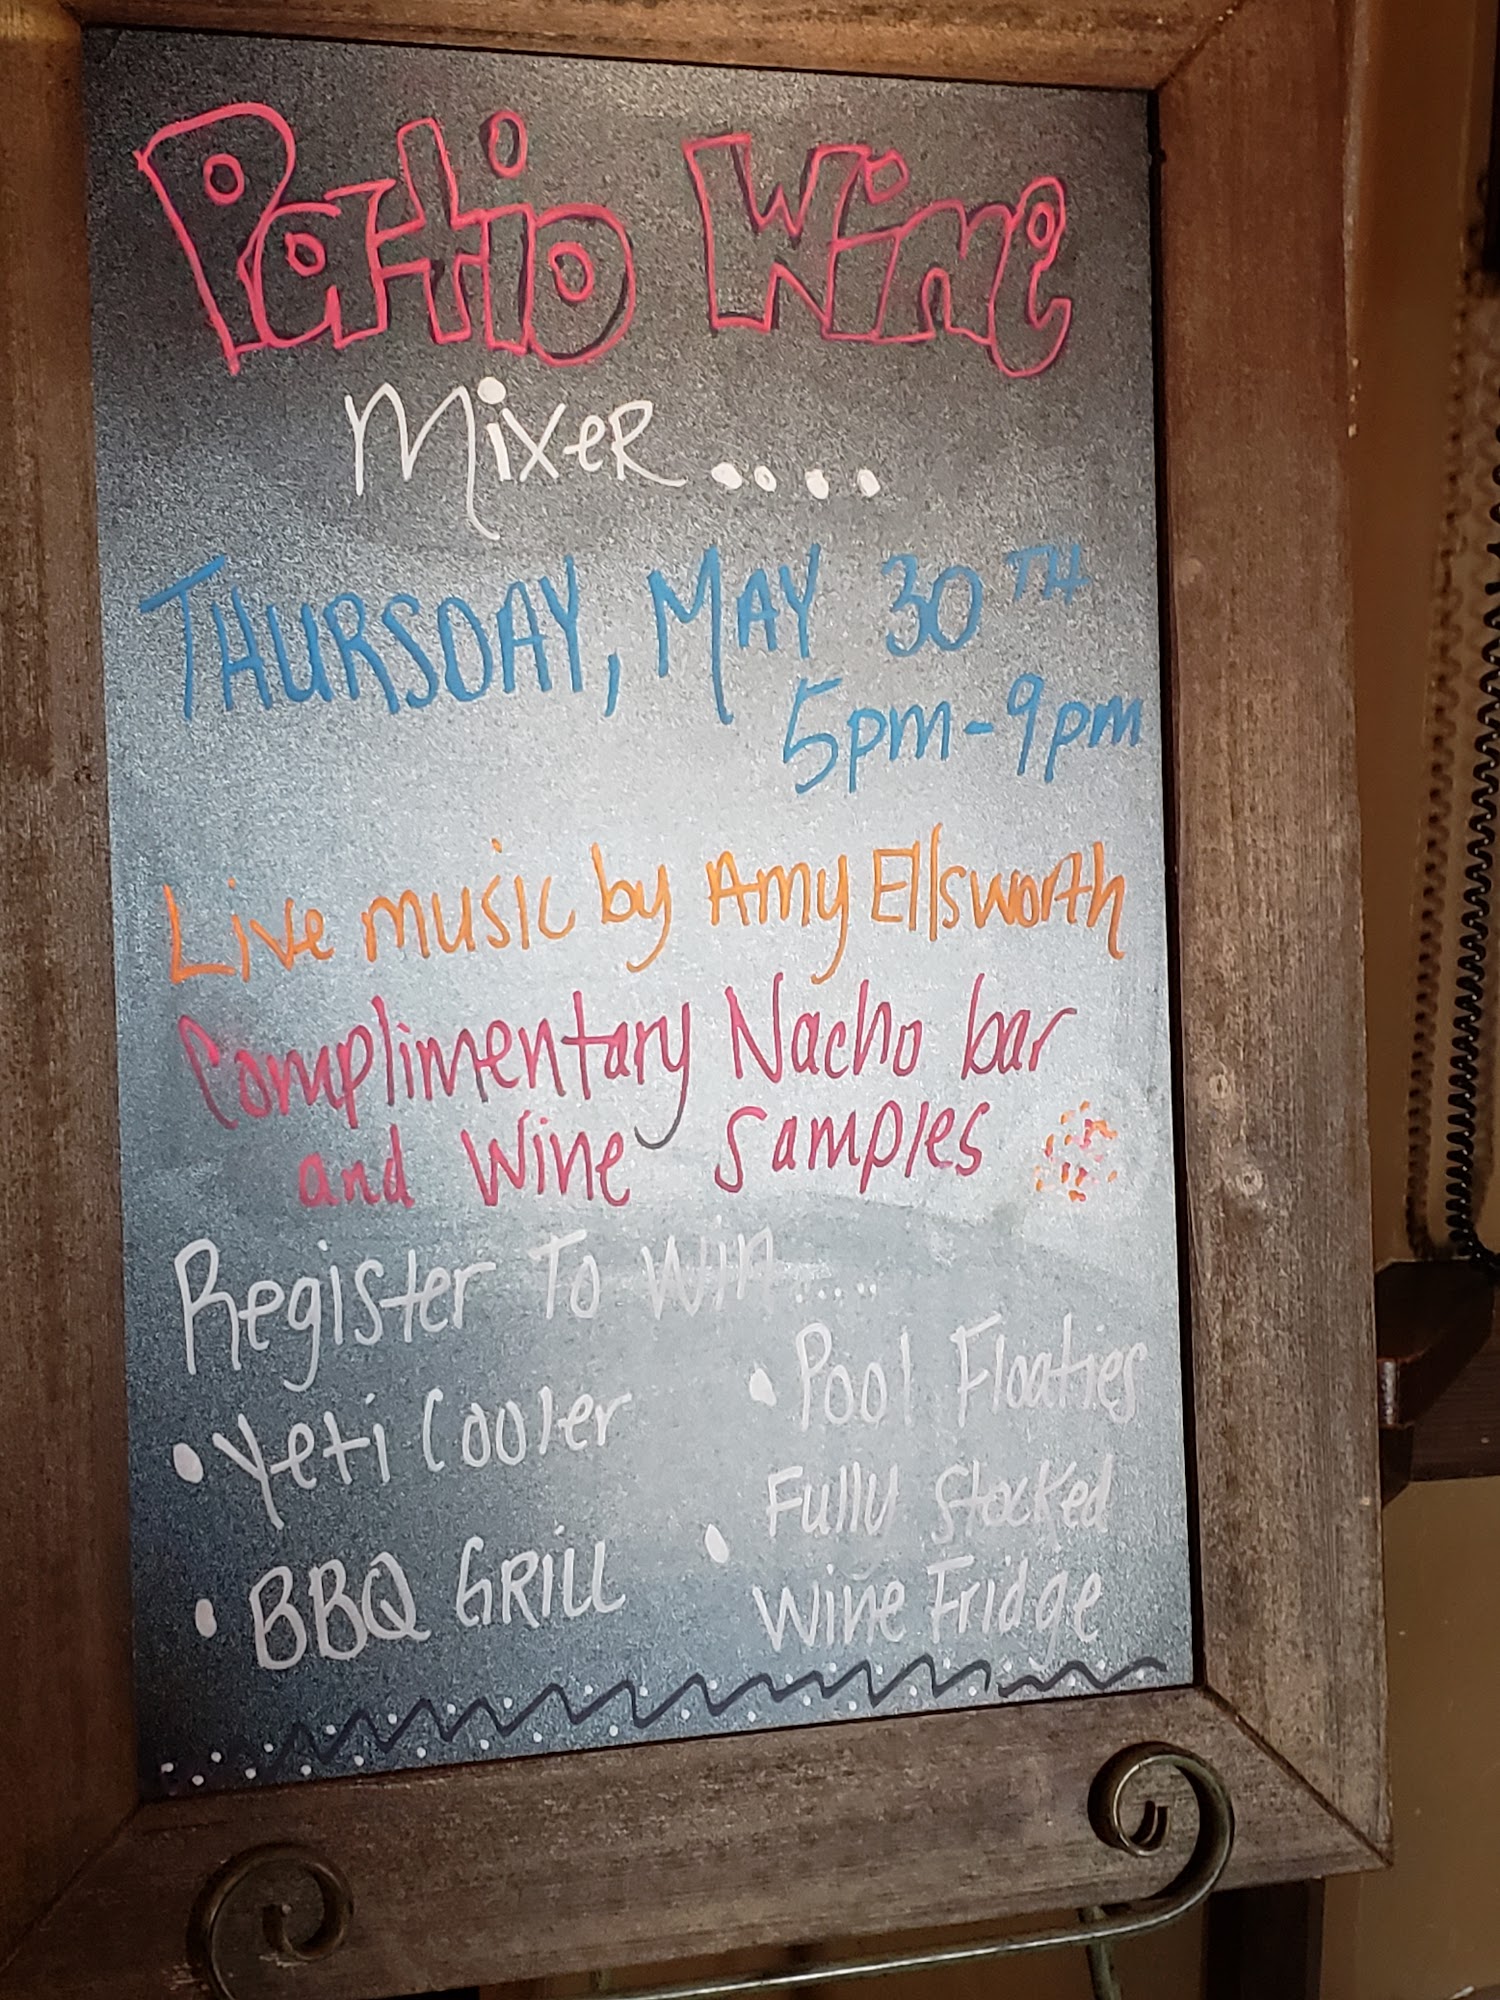 Patio Wine
Mixer....
THURSDAY, MAY 30TH
5pm-9pm
Live music by Amy Ellsworth
Complimentary Nacho bar
and Wine Samples
Register To Win.....
• Yeti Cooler
• BBQ GRILL
• Pool Floaties
• Fully Stocked
Wine Fridge